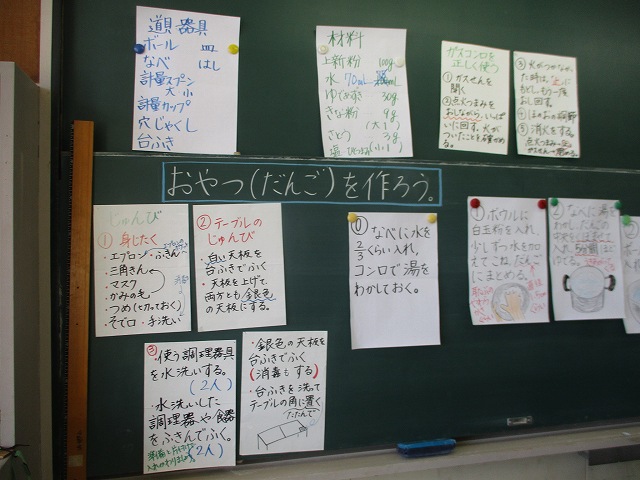 道具器具
ボール 皿
なべ はし
計量スプーン
大小
計量カップ
穴じゃくし
台ふき
材料
上新粉 100g
水
ゆであずき 30g
きな粉 9g
(大1)
さとう 3g
塩 ひとつまみ(小1)
ガスコンロを
正しく使う
①ガスせんを
開く
②点火つまみを
おしながら、いっぱ
いに回す。火が
ついたことを確かめ
る。
③火がつかなかっ
た時は、「止」に
もどし、もう一度
おし回す。
④ほのおの調節
⑤消火をする。
おやつ(だんご)を作ろう。
じゅんび
①身じたく
・エプロン・ふきん
・三角きん
・マスク
・かみの毛
・つめ(切っておく)
・そで口・手洗い
②テーブルの
じゅんび
・白い天板を
台ふきでふく
・天板を上げて、
両方とも銀色
の天板にする。
③
・使う調理器具
を水洗いする。
(2人)
・水洗いした
調理器や食器
をふきんでふく。
(2人)
・銀色の天板を
台ふきでふく
(消毒もする)
・台ふきを洗って
テーブルの角に置く
たたんで
⓪なべに水を
2/3くらい入れ、
コンロで湯を
わかしておく。
①ボウルに
白玉粉を入れ、
少しずつ水を加
えてこね、だんご
にまとめる。
②なべに湯を
わかし、だんごの